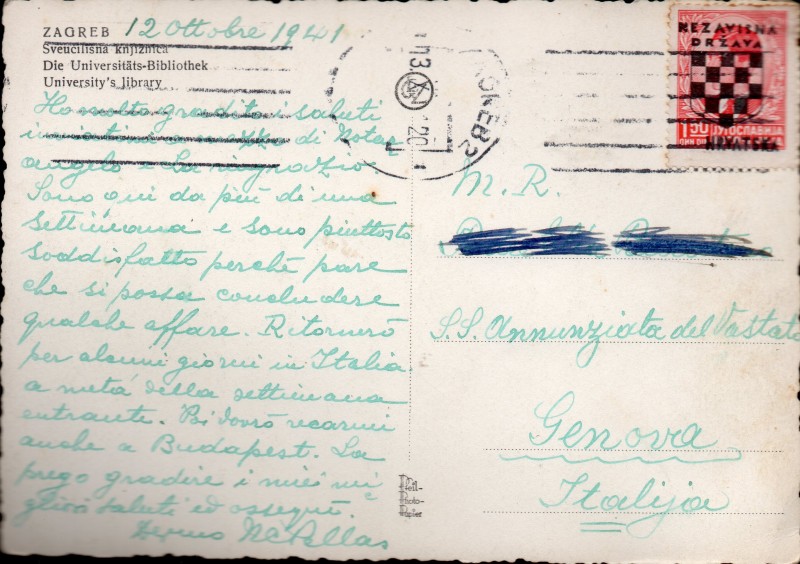 ZAGREB 12 Ottobre 1941
Sveučilisna knjižnica
Die Universitäts-Bibliothek
University's library
Ho molto gradito i saluti
di Notar
angelo e La ringrazio.
Sono qui da più di una
settimana e sono piuttosto
soddisfatto perchè pare
che si possa concludere
qualche affare. Ritornerò
per alcuni giorni in Italia
a metà della settimana
entrante. Poi dovrò recarmi
anche a Budapest. La
prego gradire i miei mi
gliori saluti ed ossequi.
NEZAVISNA
DRŽAVA
1.50 JUGOSLAVIJA
HRVATSKA
M. R.
S.S. Annunziata del Vastato
Genova
Italija